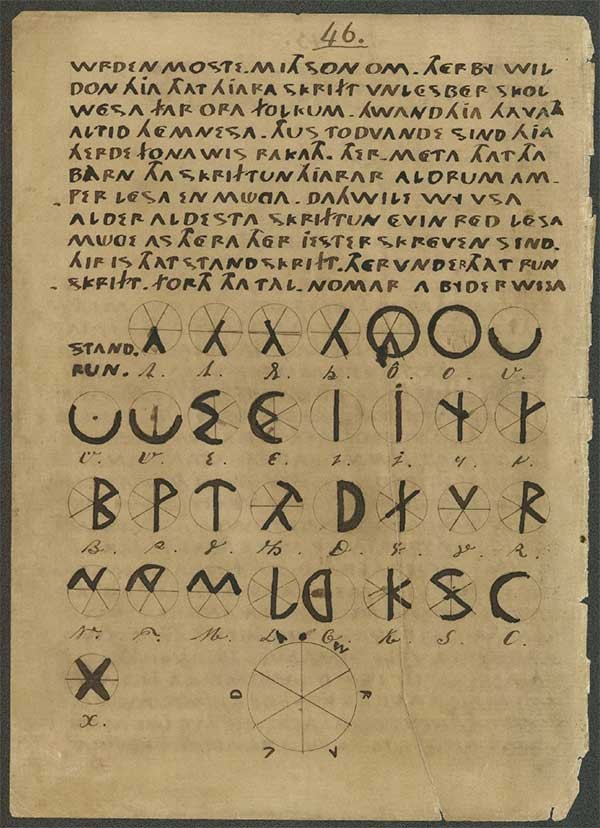 46.
WRDEN MOSTE. MITH SON OM. THERBY WIL
DON HIA THAT HIARA SKRIFT VNLESBER SKOL
WESA FAR ORA FOLKUM. HWAND HIA HAVATH
ALTID HEMNESA. THUS TODVANDE SIND HIA
HERDE FONA WIS RAKATH. THER-META THAT THA
BARN THA SKRIFTUN HIARAR ALDRUM AM-
PER LESA EN MUGA. DAHWILE WY VSA
ALDER ALDESTA SKRIFTUN EVIN RED LESA
MUGE AS THERA THER JESTER SKREVEN SIND.
HIR IS THAT STANDSKRIFT. THERVNDER THAT RUN
SKRIFT. FORTH THA TAL-NOMAR A BYDER WISA
STAND.
RUN. A. A. Ö. O. U.
U. W. E. E. I. J. Y.
B. P. T. TH. D. R.
N. M. L. G. K. S. C.
X.